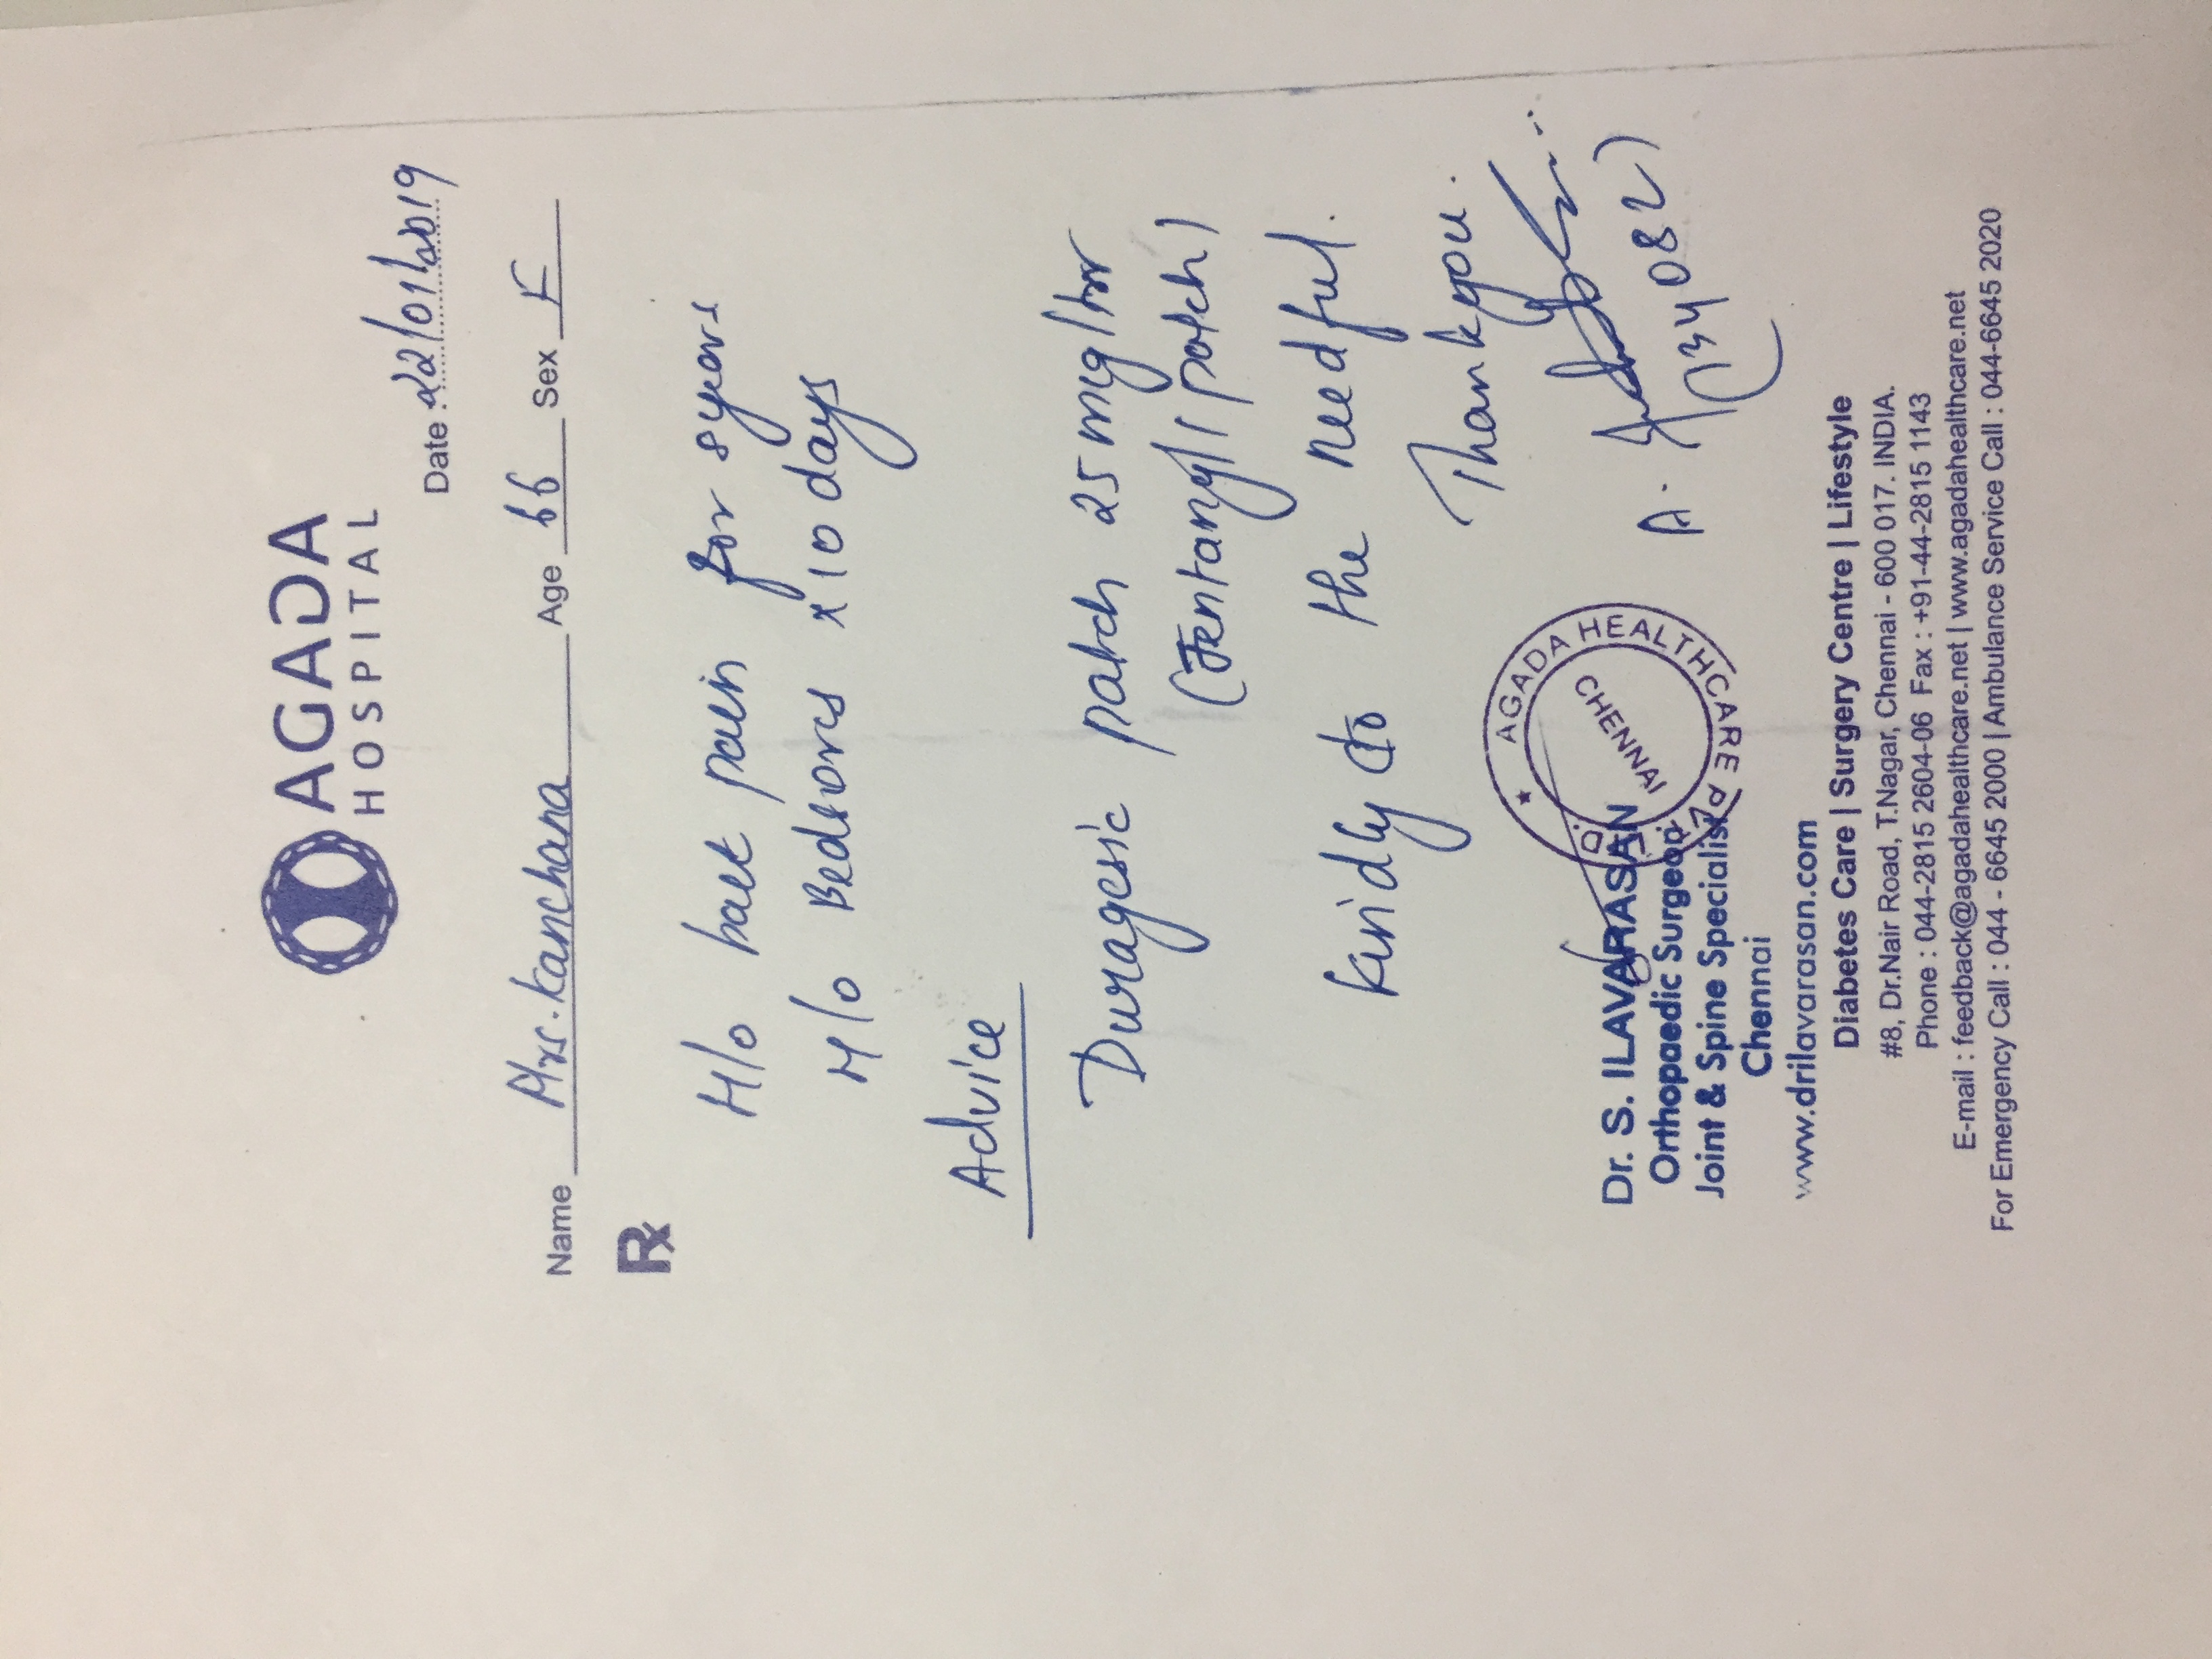 AGADA
HOSPITAL
Date : 22/01/2019
Name Mrs. Kanchana Age 66 Sex F
Rx
H/o back pain for 8 years
H/o Bedsores x 10 days
Advice
Duragesic patch 25 mcg/hr
(Fentanyl 1 patch)
Kindly do the needful.
Thankyou.
A.
(134082)
AGADA HEALTHCARE PVT. LTD.
CHENNAI
Dr. S. ILAVARASAN
Orthopaedic Surgeon
Joint & Spine Specialist
Chennai
www.drilavarasan.com
Diabetes Care | Surgery Centre | Lifestyle
#8, Dr.Nair Road, T.Nagar, Chennai - 600 017. INDIA.
Phone : 044-2815 2604-06 Fax : +91-44-2815 1143
E-mail : feedback@agadahealthcare.net | www.agadahealthcare.net
For Emergency Call : 044 - 6645 2000 | Ambulance Service Call : 044-6645 2020